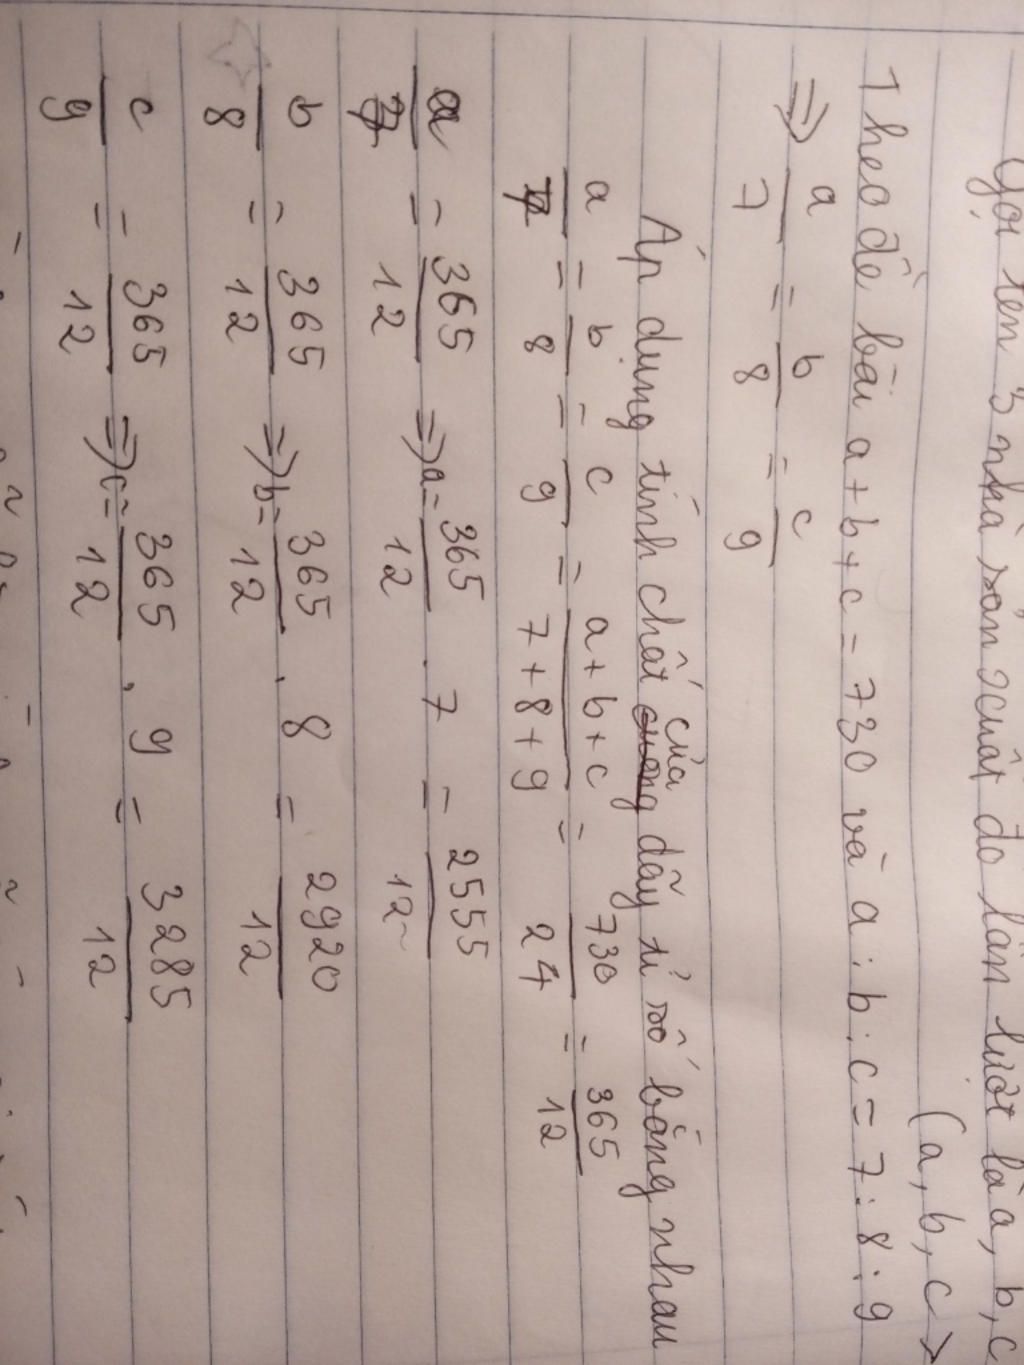 Gọi tên 3 nhà sản xuất đo lần lượt là a, b, c
(a, b, c >
Theo đề bài a + b + c = 730 và a : b : c = 7 : 8 : 9
⇒ a/7 = b/8 = c/9
Áp dụng tính chất của dãy tỉ số bằng nhau
a/7 = b/8 = c/9 = a+b+c/7+8+9 = 730/24 = 365/12
a/7 = 365/12 ⇒ a = 365/12 . 7 = 2555/12
b/8 = 365/12 ⇒ b = 365/12 . 8 = 2920/12
c/9 = 365/12 ⇒ c = 365/12 . 9 = 3285/12